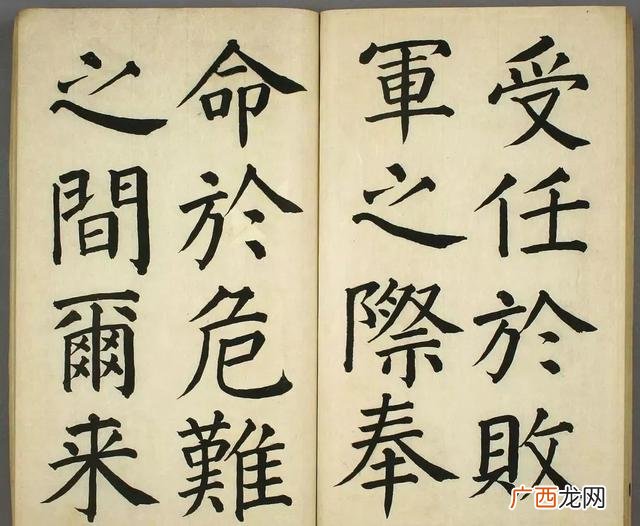 受任於敗
軍之際奉
命於危難
之間爾来
广西龙网